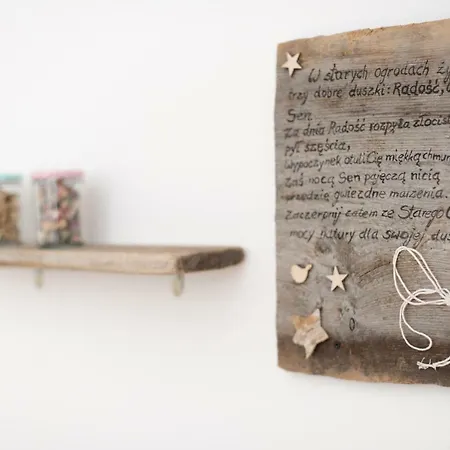 W starych ogrodach ży
trzy dobre duszki: Radość,
Sen.
Za dnia Radość rozpyla złocis
pył szczęścia,
Wypoczynek otuli Cię miękką chmur
Zaś nocą Sen pajęczą nicią
uprzędzie gwiezdne marzenia.
Zaczerpnij zatem ze Starego
mocy natury dla swojej dus